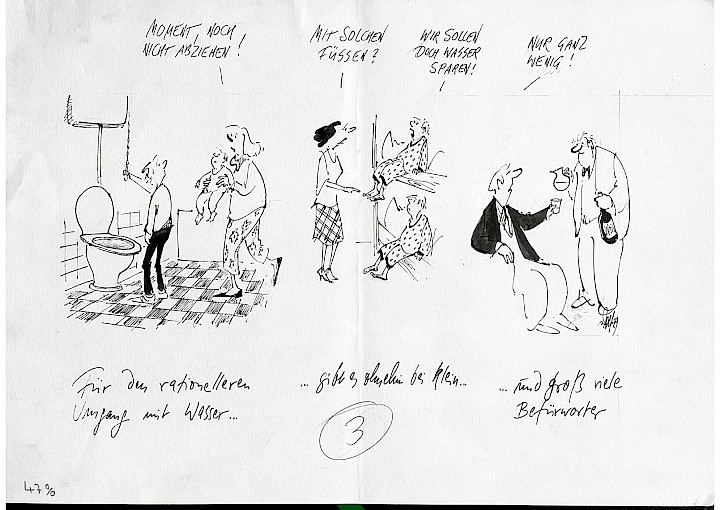 MOMENT, NOCH
NICHT ABZIEHEN!
MIT SOLCHEN
FÜSSEN?
WIR SOLLEN
DOCH WASSER
SPAREN!
NUR GANZ
WENIG!
Für den rationelleren
Umgang mit Wasser...
... gibt es ohnehin bei Klein...
... und groß viele
Befürworter
3
47%